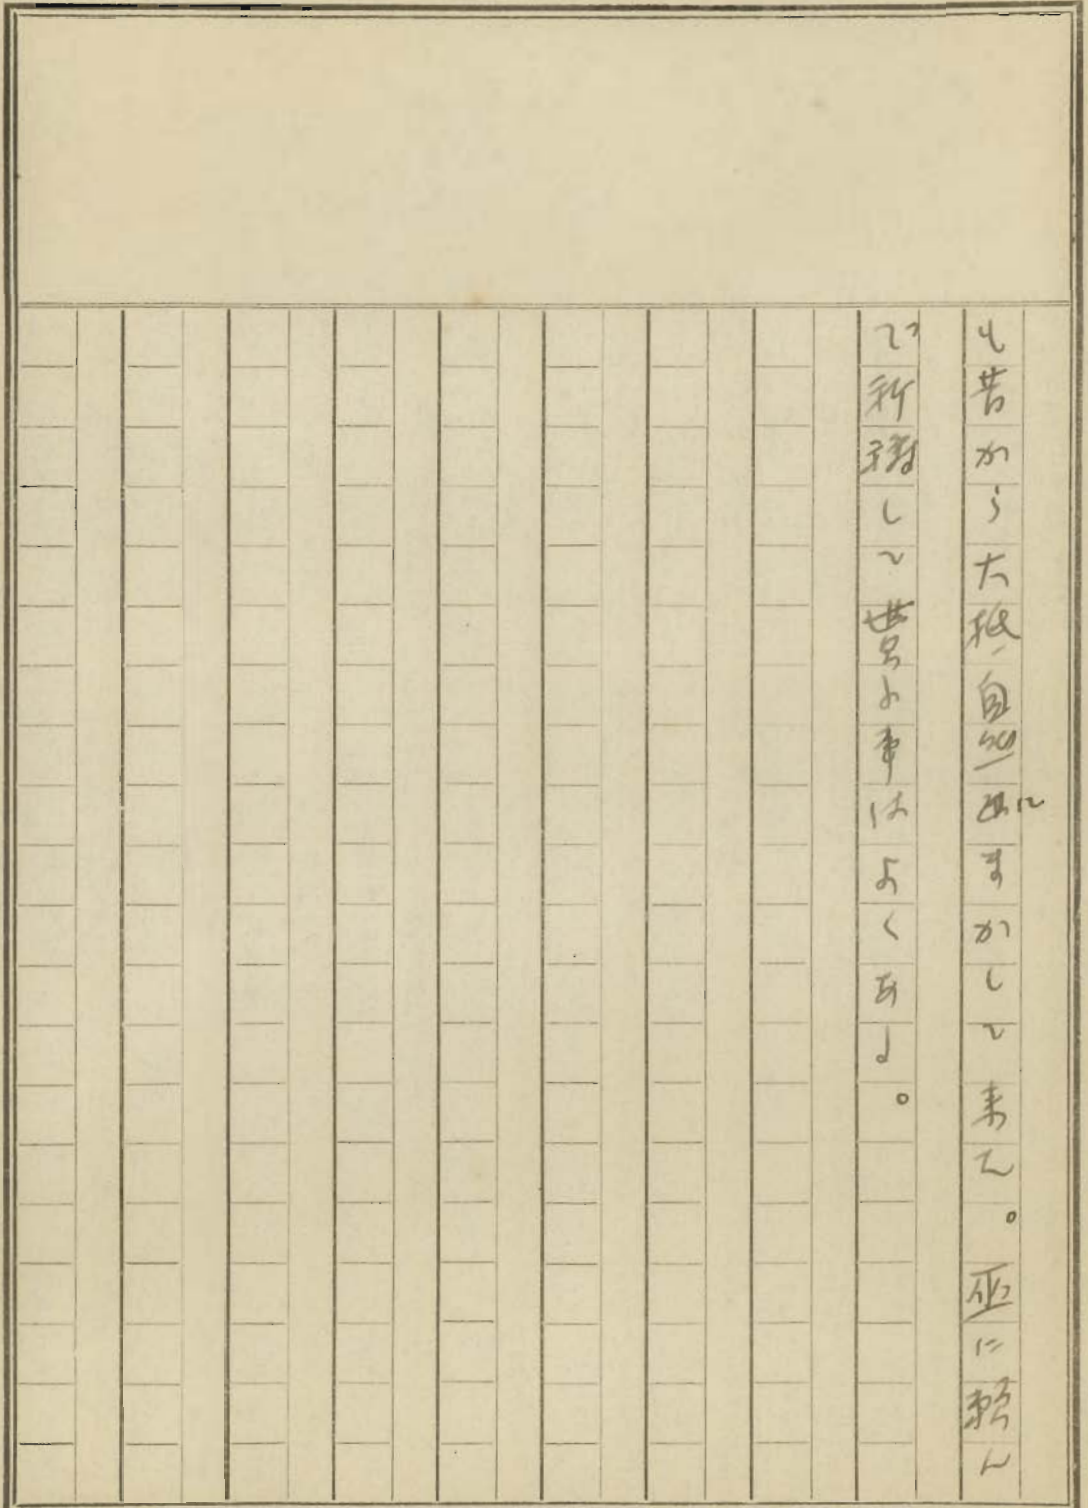 も昔から大抵自然にまかして来た。巫に頼ん
で祈禱して貰ふ事はよくある。